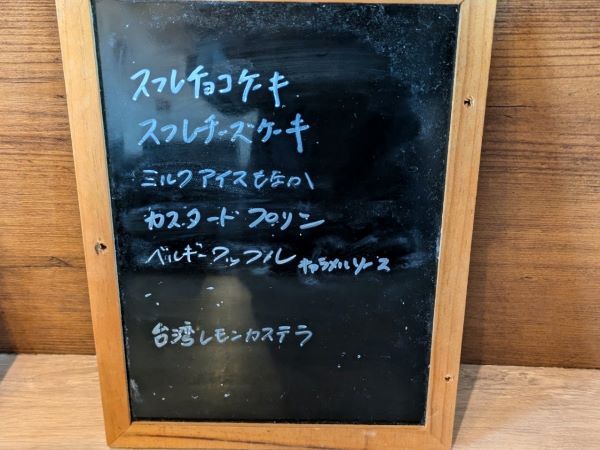 スフレチョコケーキ
スフレチーズケーキ
ミルクアイスもなか
カスタードプリン
ベルギーワッフル キャラメルソース
台湾レモンカステラ